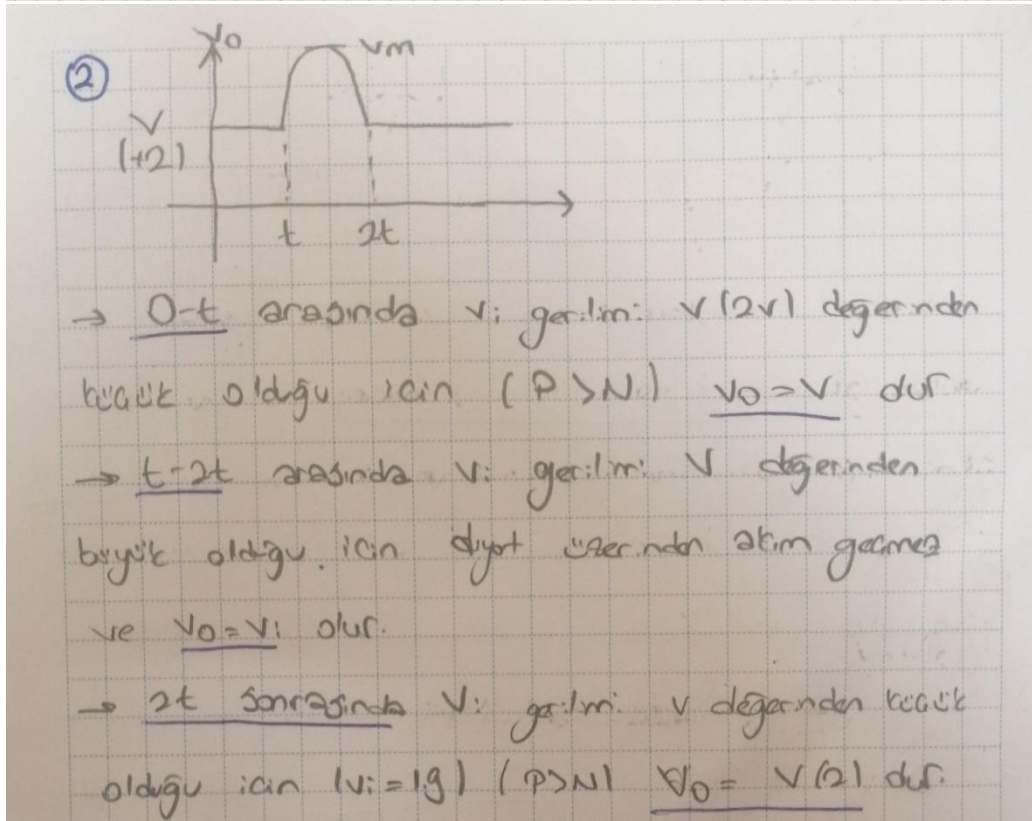 ② Vo Vm
V
(+2)
t 2t
→ 0-t arasında Vi gerilimi V (2V) değerinden
küçük olduğu için (P>N) Vo=V dur
→ t-2t arasında Vi gerilimi V değerinden
büyük olduğu için diyot üzerinden akım geçmez
ve Vo=Vi olur.
→ 2t sonrasında Vi gerilimi V değerinden küçük
olduğu için (Vi= ) (P>N) Vo= V(2) dur.